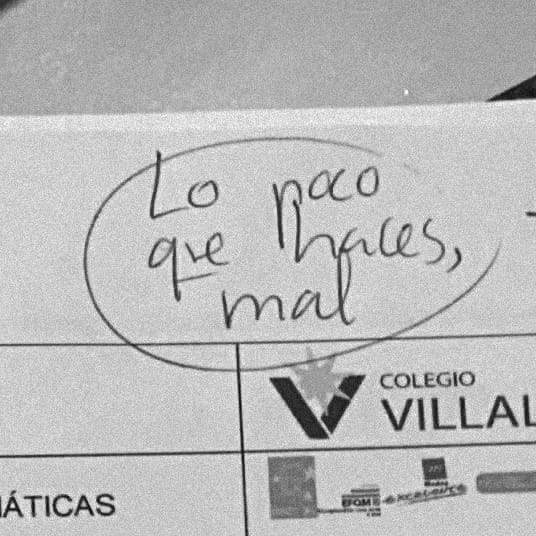 Lo poco
que haces,
mal
COLEGIO
VILLAL
ÁTICAS
EFQM
excelence